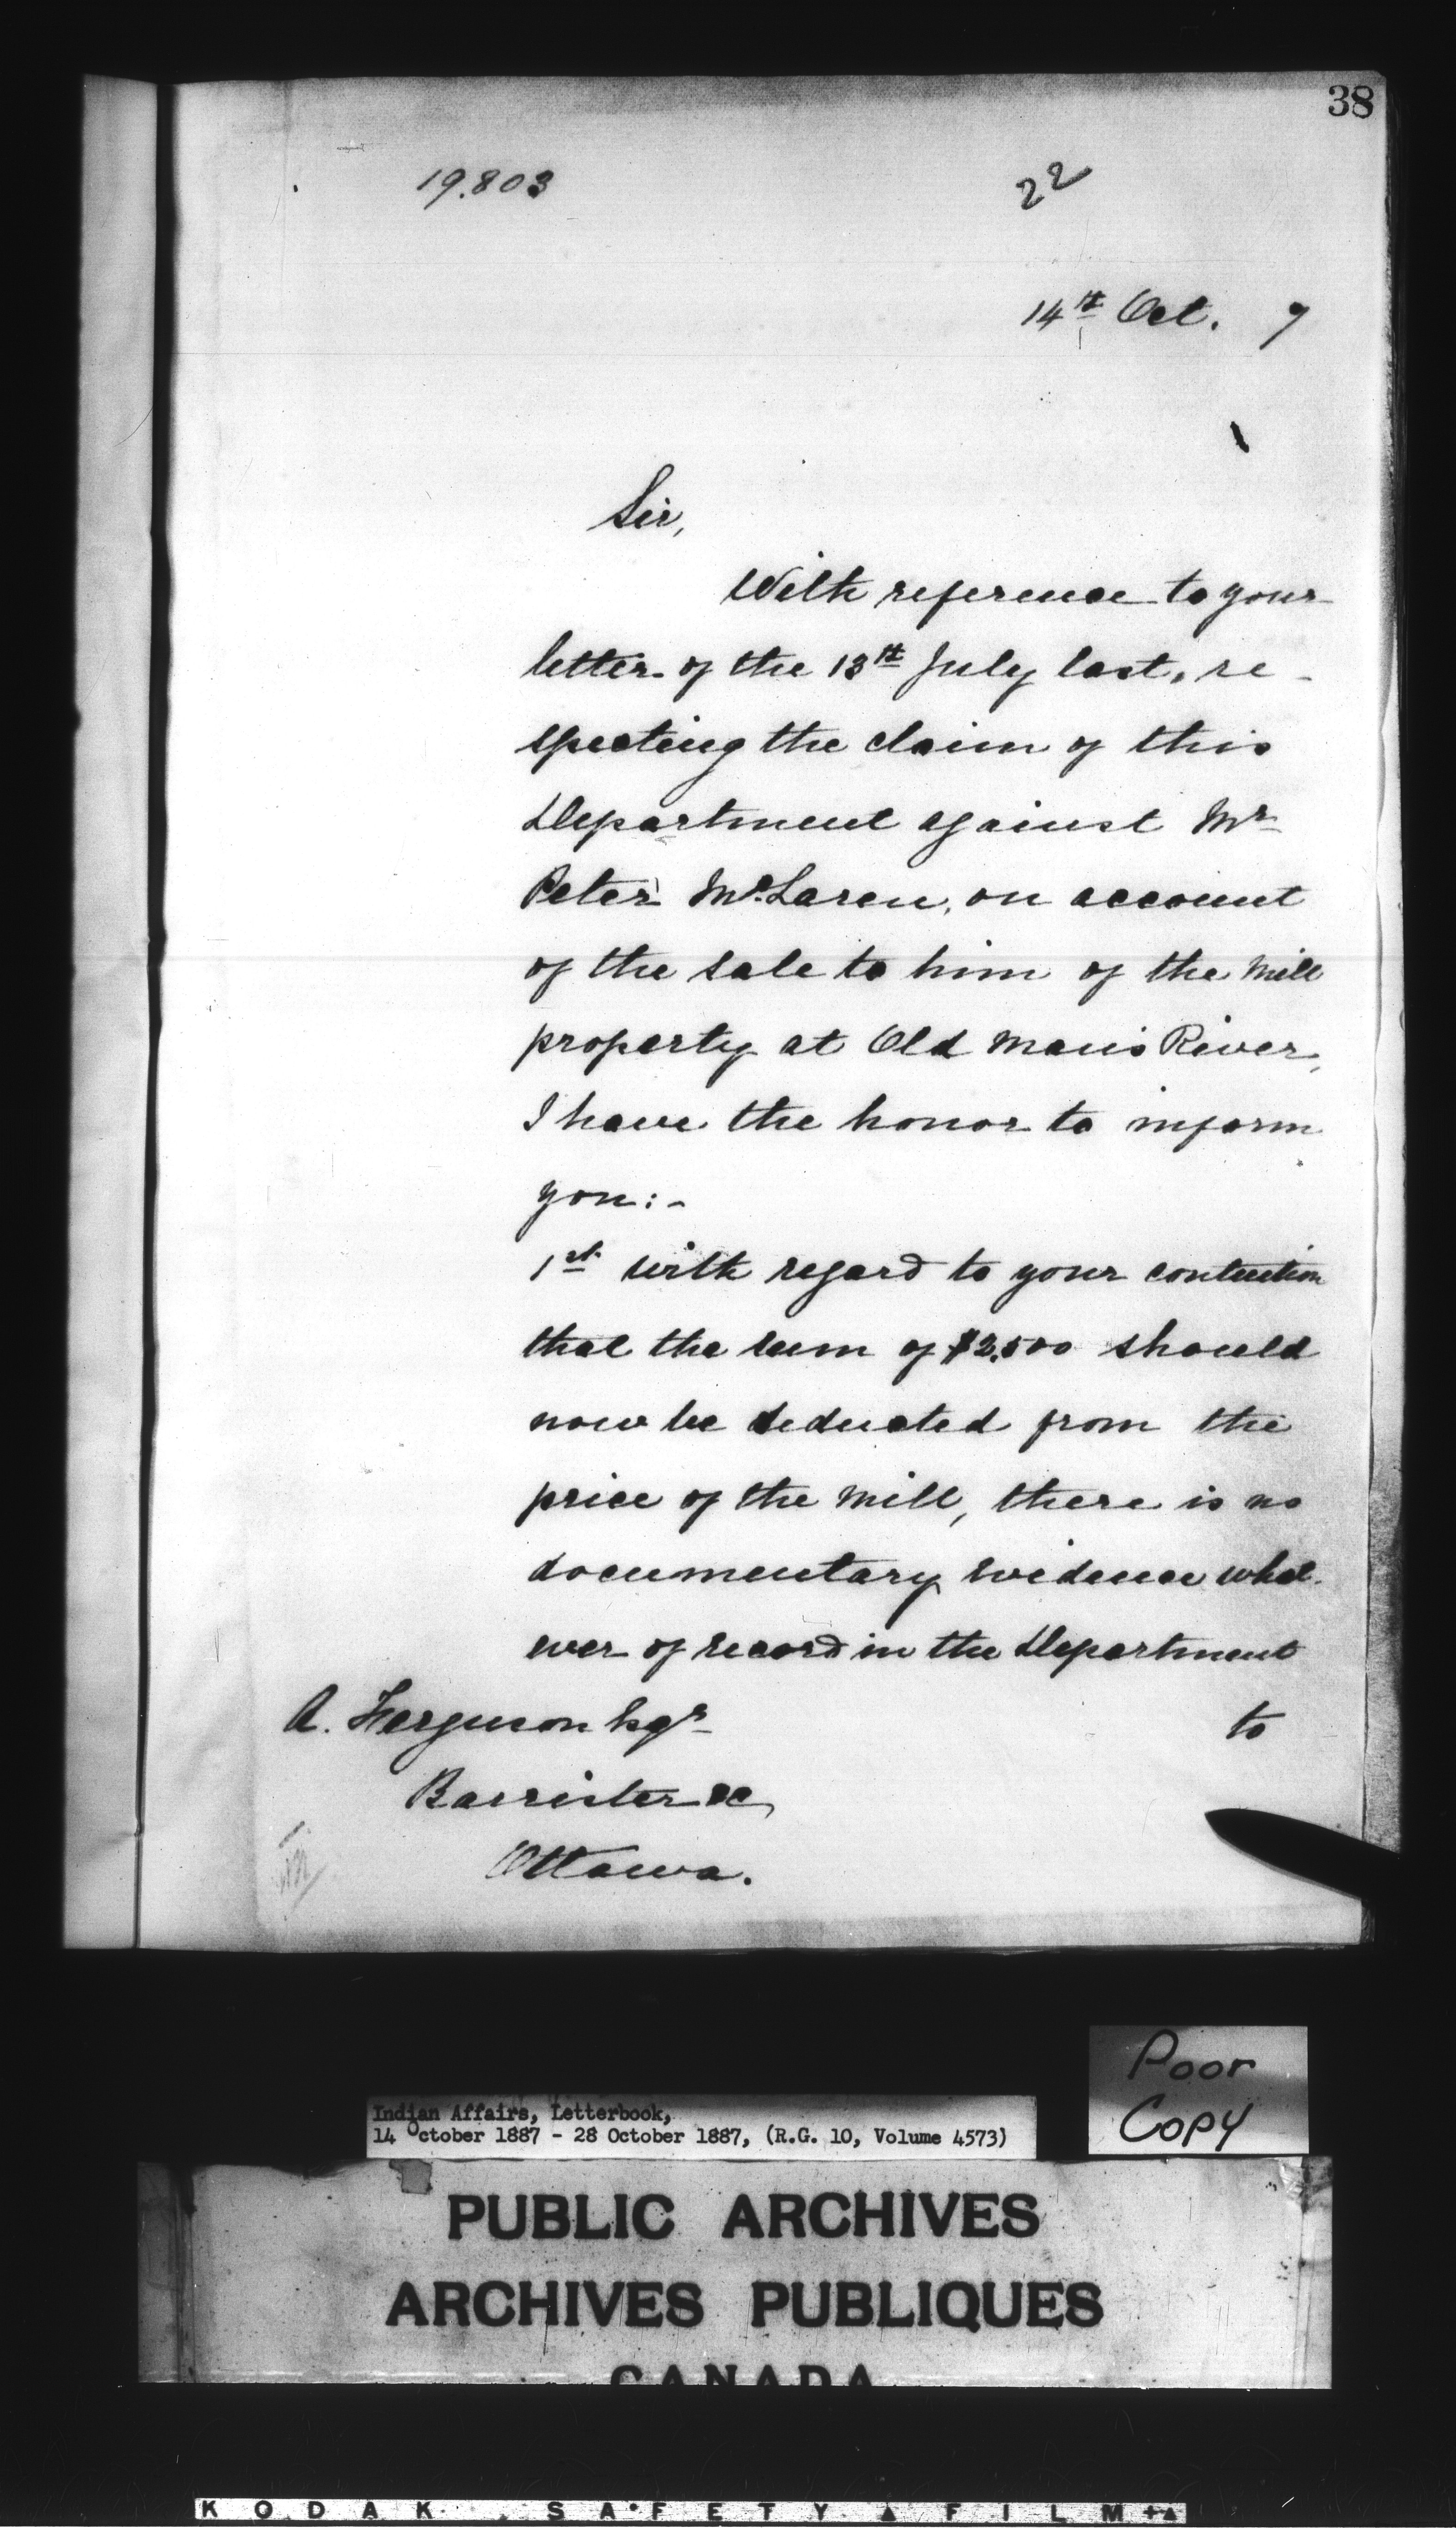 38
19.803
22
14th Oct. 7
Sir,
With reference to your
letter of the 13th July last, re-
specting the claim of this
Department against Mr
Peter McLaren, on account
of the sale to him of the Mill
property at Old Man's River,
I have the honor to inform
you:-
1st with regard to your contention
that the sum of $2,500 should
now be deducted from the
price of the Mill, there is no
documentary evidence what-
ever of record in the Department
A. Ferguson Esqr
to
Barrister &c,
Ottawa.
Poor
Copy
Indian Affairs, Letterbook,
14 October 1887 - 28 October 1887, (R.G. 10, Volume 4573)
PUBLIC ARCHIVES
ARCHIVES PUBLIQUES
CANADA
KODAK SAFETY FILM